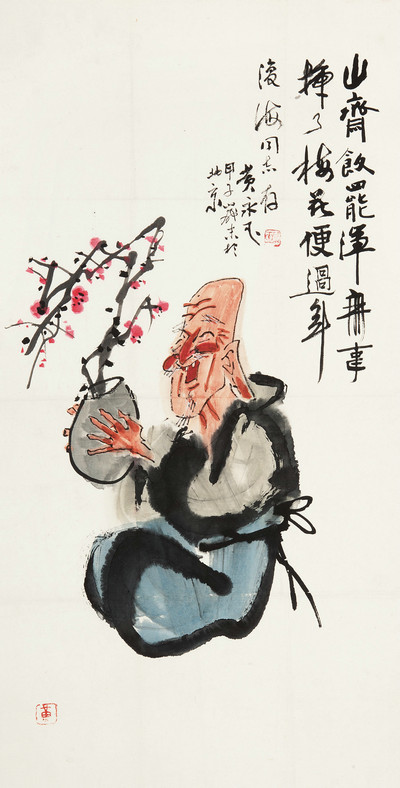 山齋飯罷渾無事
插了梅花便過年
復海同志存
黃永玉
甲子歲末於
北京
黃